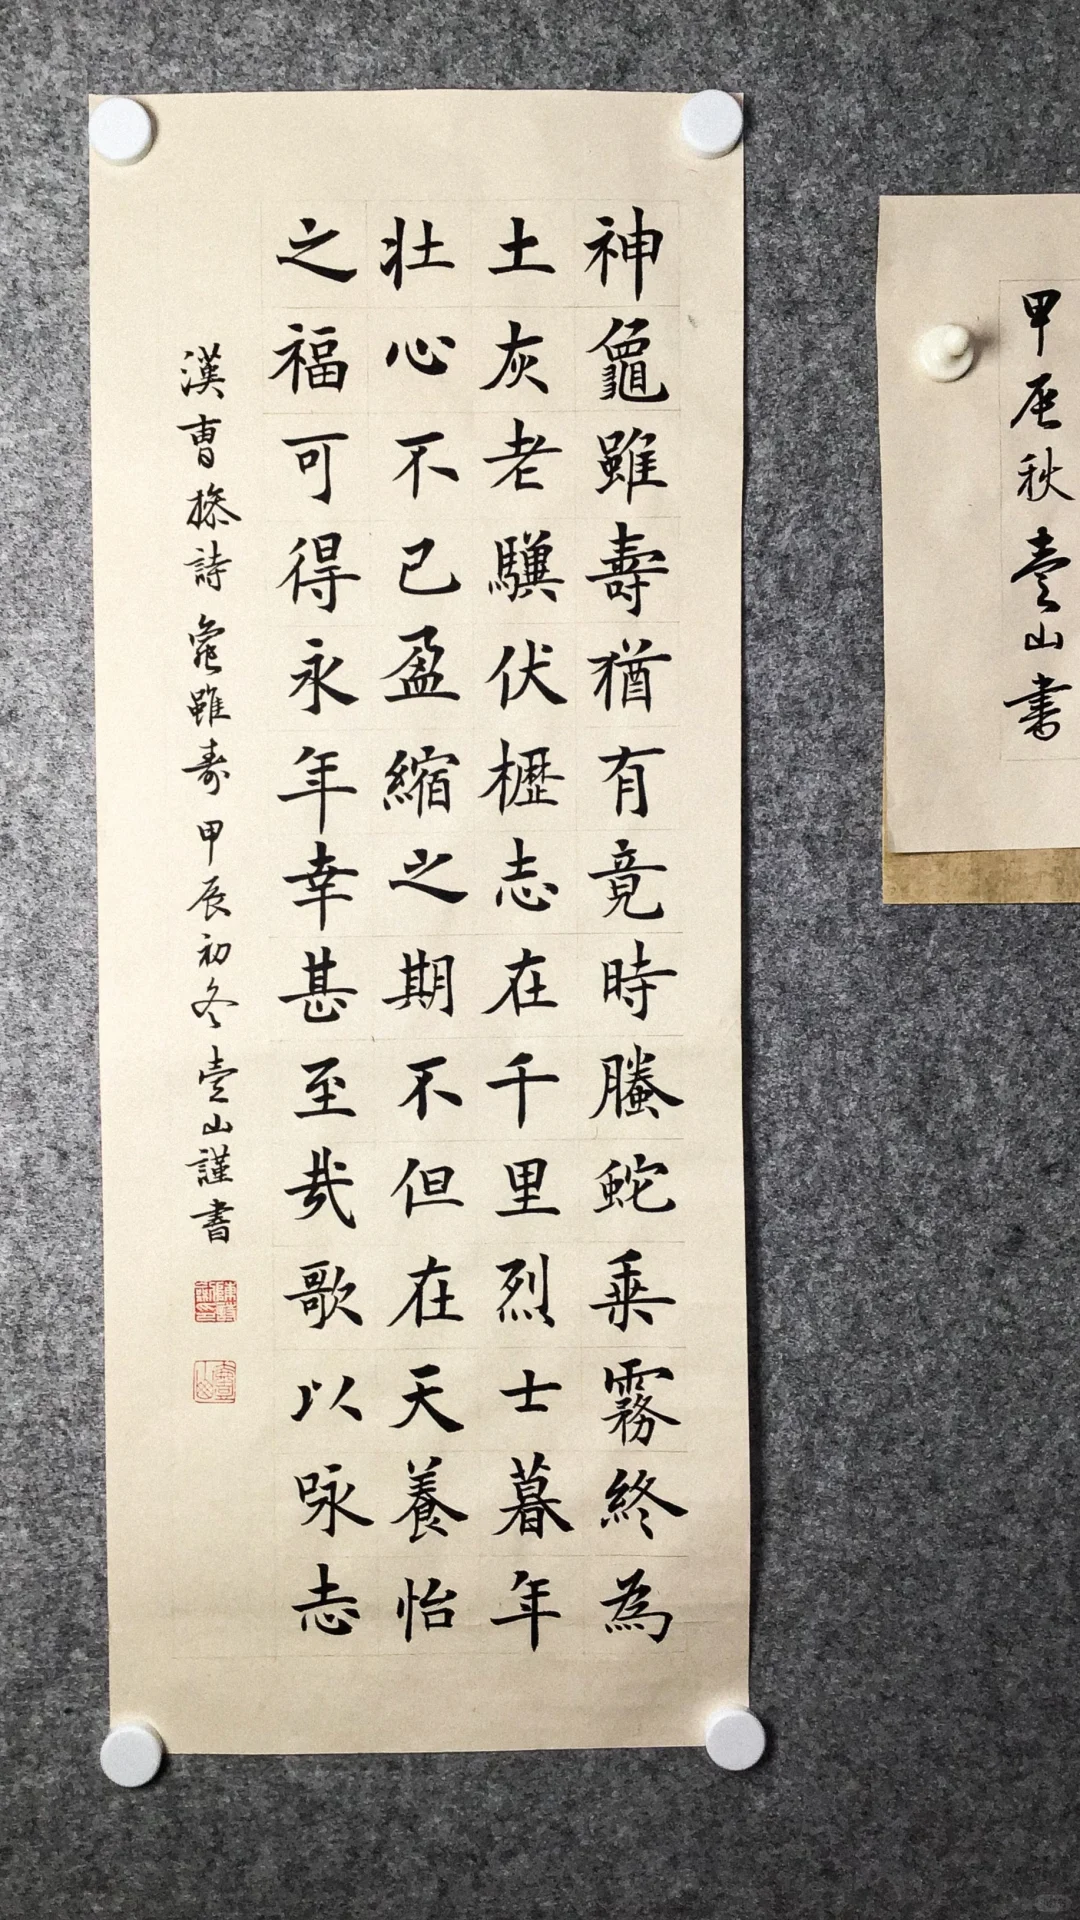 神龜雖壽猶有竟時螣蛇乗霧終為
土灰老驥伏櫪志在千里烈士暮年
壯心不已盈縮之期不但在天養怡
之福可得永年幸甚至哉歌以咏志
漢曹操詩龜雖壽甲辰初冬壹山謹書
甲辰秋壹山書